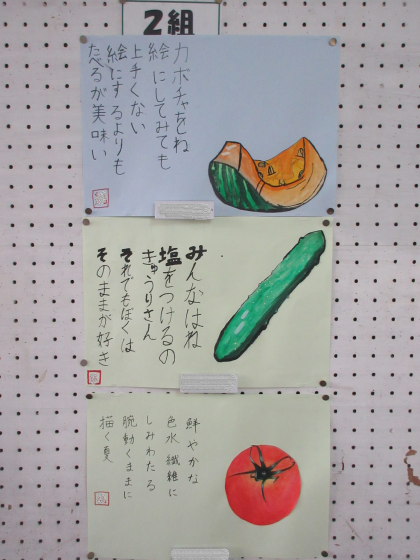 2組
カボチャをね
絵にしてみても
上手くない
絵にするよりも
たべるが美味い
みんなはね
塩をつけるの
きゅうりさん
それでもぼくは
そのままが好き
鮮やかな
色水繊維に
しみわたる
腕動くままに
描く夏